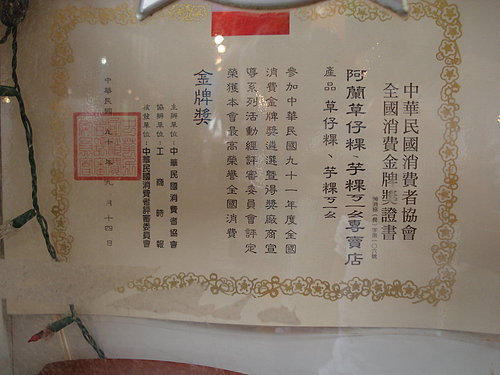 中華民國消費者協會
全國消費金牌獎證書
阿蘭草仔粿、芋粿ㄎㄧㄠ專賣店
產品 草仔粿、芋粿ㄎㄧㄠ
參加中華民國九十一年度全國
消費金牌獎遴選暨得獎廠商宣
導系列活動經評審委員會評定
榮獲本會最高榮譽全國消費
金牌獎
主辦單位：中華民國消費者協會
協辦單位：工商時報
核發單位：中華民國消費者評審委員會
中華民國九十一年九月十四日